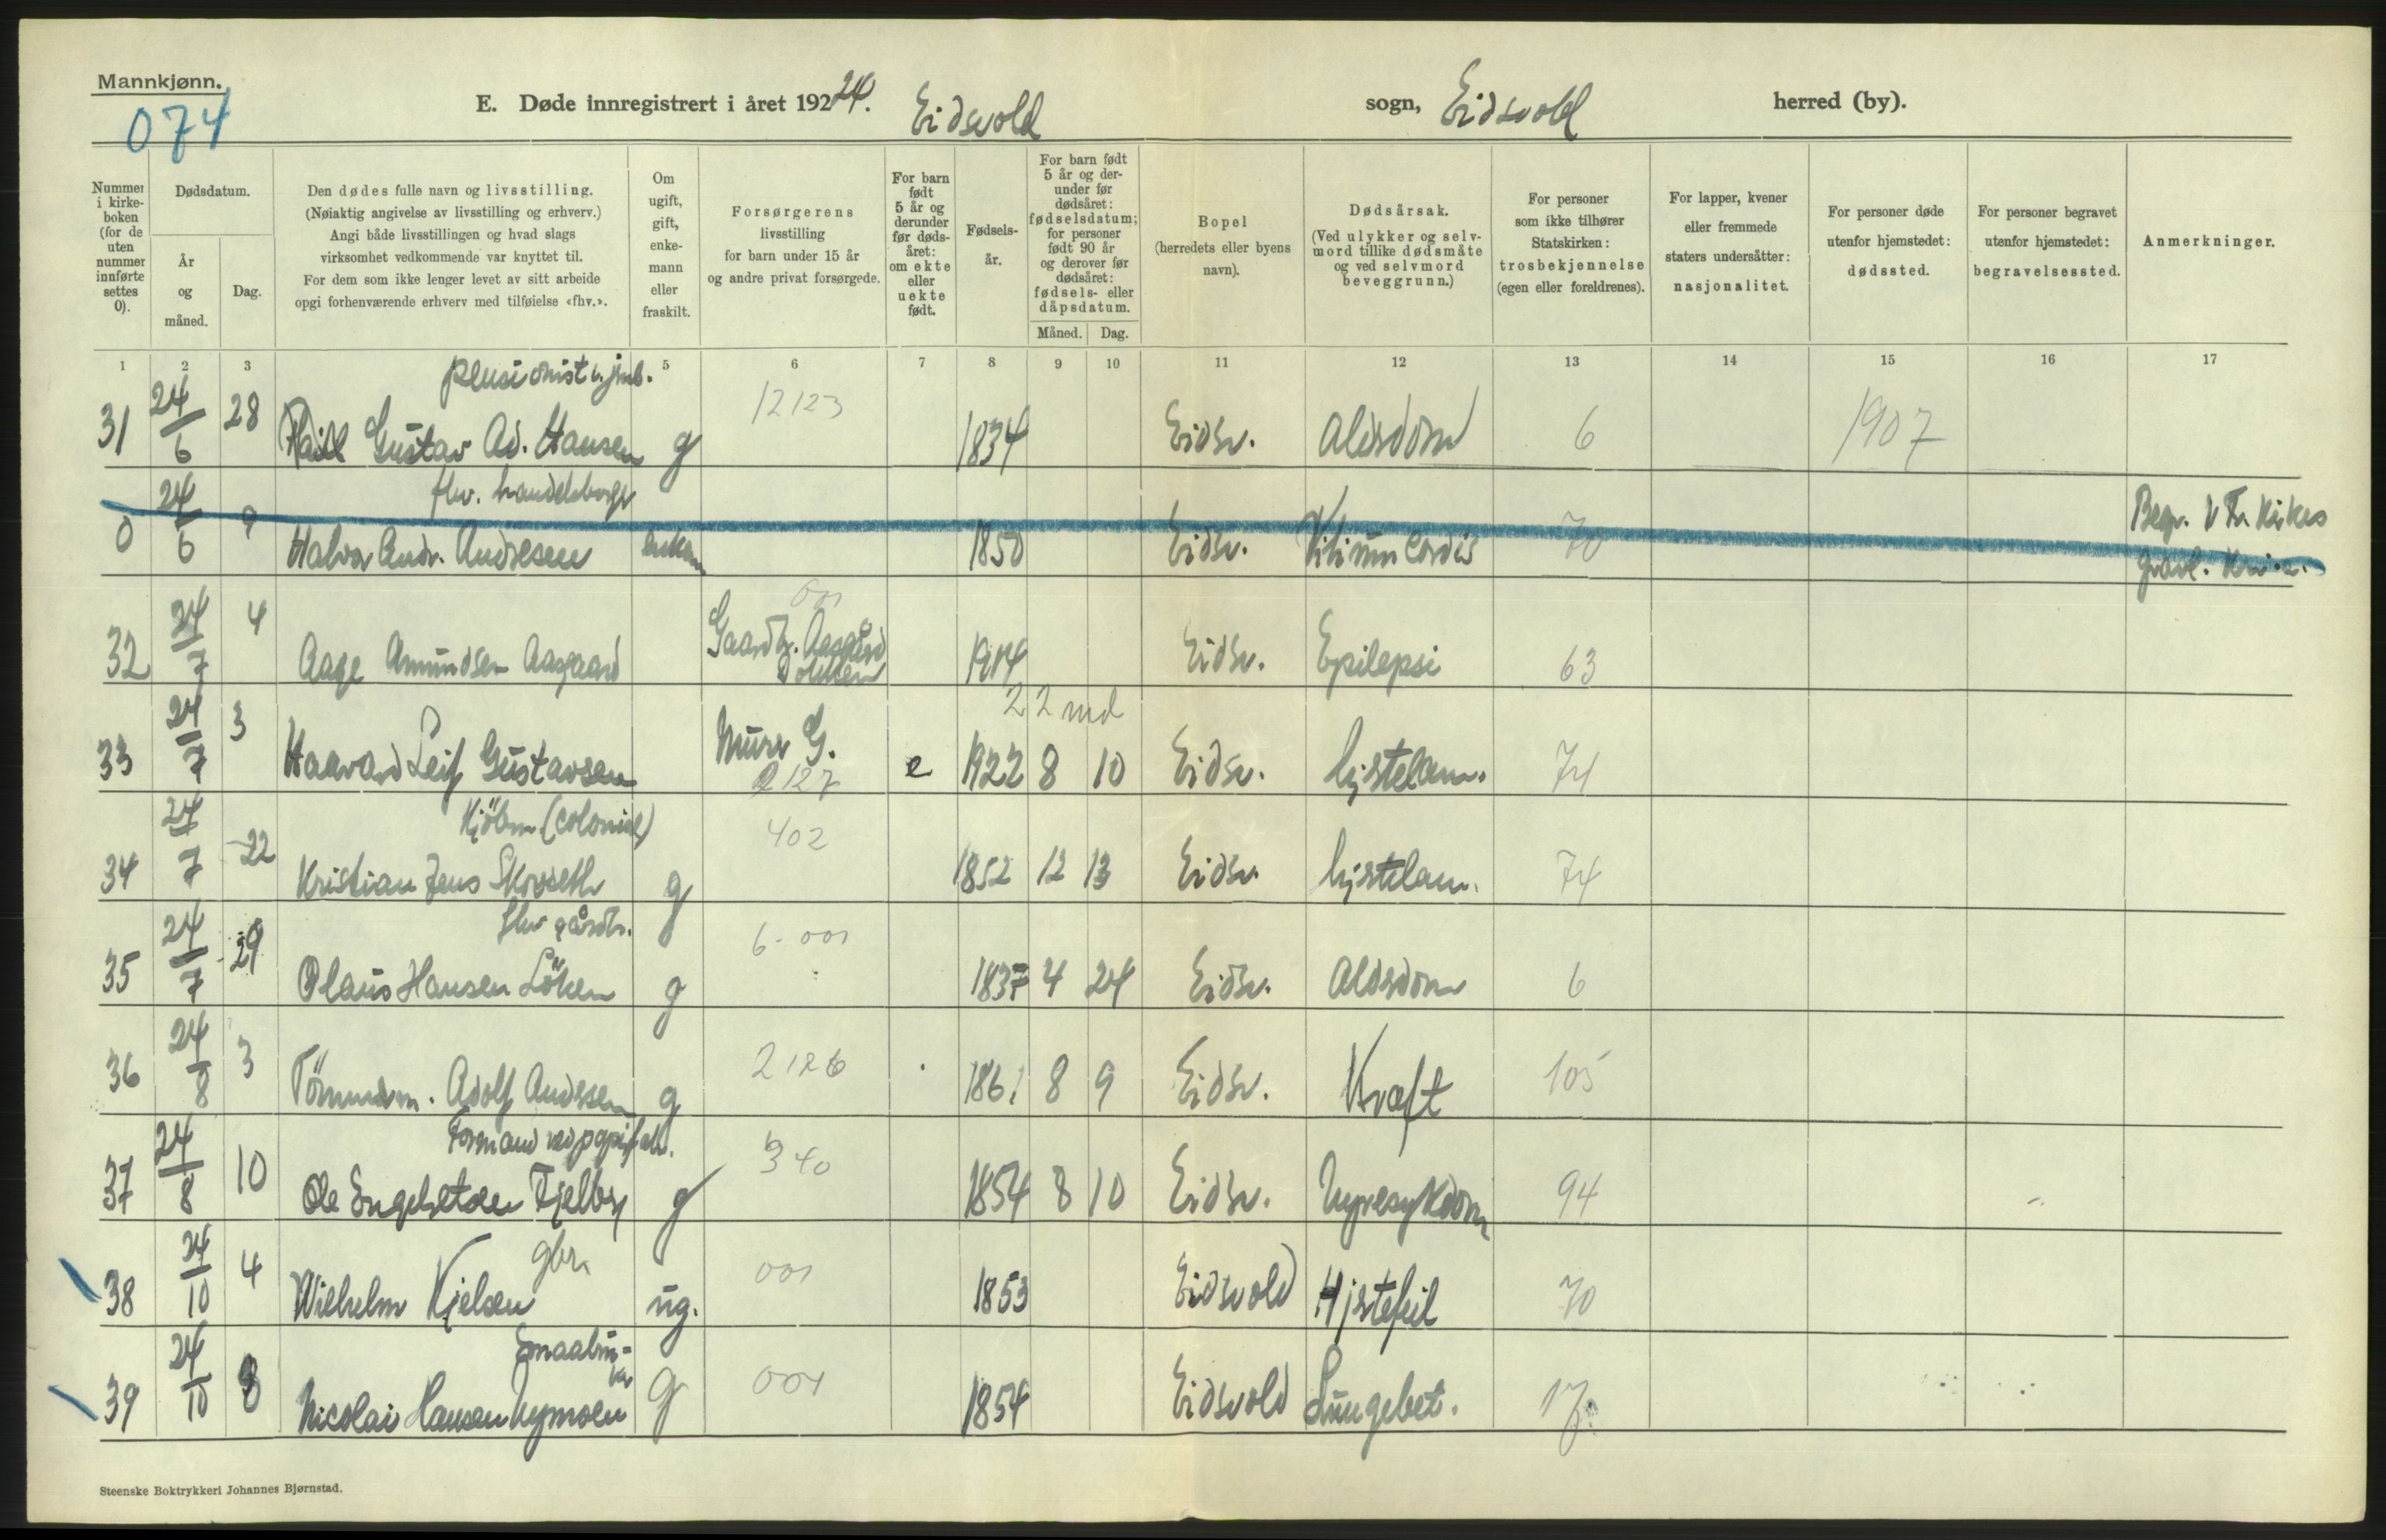 Mannkjønn.
074
E. Døde innregistrert i året 1924. Eidsvold sogn, Eidsvold herred (by).
Nummer i kirkeboken (for de uten nummer innførte settes 0).
Dødsdatum.
År og måned.
Dag.
Den dødes fulle navn og livsstilling.
(Nøiaktig angivelse av livsstilling og erhverv.)
Angi både livsstillingen og hvad slags
virksomhet vedkommende var knyttet til.
For dem som ikke lenger levet av sitt arbeide
opgi forhenværende erhverv med tilføielse «fhv.».
Om ugift, gift, enkemann eller fraskilt.
Forsørgerens
livsstilling
for barn under 15 år
og andre privat forsørgede.
For barn født 5 år og derunder før dødsåret: om ekte eller uekte født.
Fødselsår.
For barn født 5 år og derunder før dødsåret: fødselsdatum; for personer født 90 år og derover før dødsåret: fødsels- eller dåpsdatum.
Måned. Dag.
Bopel
(herredets eller byens navn).
Dødsårsak.
(Ved ulykker og selvmord tillike dødsmåte og ved selvmord beveggrunn.)
For personer
som ikke tilhører
Statskirken:
trosbekjennelse
(egen eller foreldrenes).
For lapper, kvener
eller fremmede
staters undersåtter:
nasjonalitet.
For personer døde
utenfor hjemstedet:
dødssted.
For personer begravet
utenfor hjemstedet:
begravelsessted.
Anmerkninger.
1 2 3 5 6 7 8 9 10 11 12 13 14 15 16 17
pensionist v. jernb.
31 24/6 28 Gustav Ad. Hansen g 12123 1834 Eidsv. Alderdom 6 1907
fhv. handelsborger
0 24/6 9 Halvor Andr. Andresen enkem 1850 Eidsv. Vitium Cordis 70 Begr. V Fr. Kirkes
gravl. Kr.a.
32 24/7 4 Aage Amundsen Aasgaard 001 Gaardbr. Aasgård 1914 Eidsv. Epilepsi 63
22 md
33 24/7 3 Haavard Leif Gustavsen Murer G. 2127 e 1922 8 10 Eidsv. hjertelam. 74
Kjöbm (colonial)
34 24/7 22 Kristian Jens Skorseth g 402 1852 12 13 Eidsv. hjertelam. 74
fhv gårdbr.
35 24/7 29 Olaus Hansen Löken g 6-001 1837 4 24 Eidsv. Alderdom 6
36 24/8 3 Tömmerm. Adolf Andersen g 2126 1861 8 9 Eidsv. Kræft 105
Formand ved
37 24/8 10 Ole Engebretsen Fjelby g 340 1854 8 10 Eidsv. Nyresykdom 94
gbr.
38 24/10 4 Wilhelm Kjelsen ug. 001 1853 Eidsvold Hjertefeil 70
Smaabru-
ker
39 24/10 8 Nicolai Hansen Nymoen g 004 1854 Eidsvold Lungebet. 17
Steenske Boktrykkeri Johannes Bjørnstad.